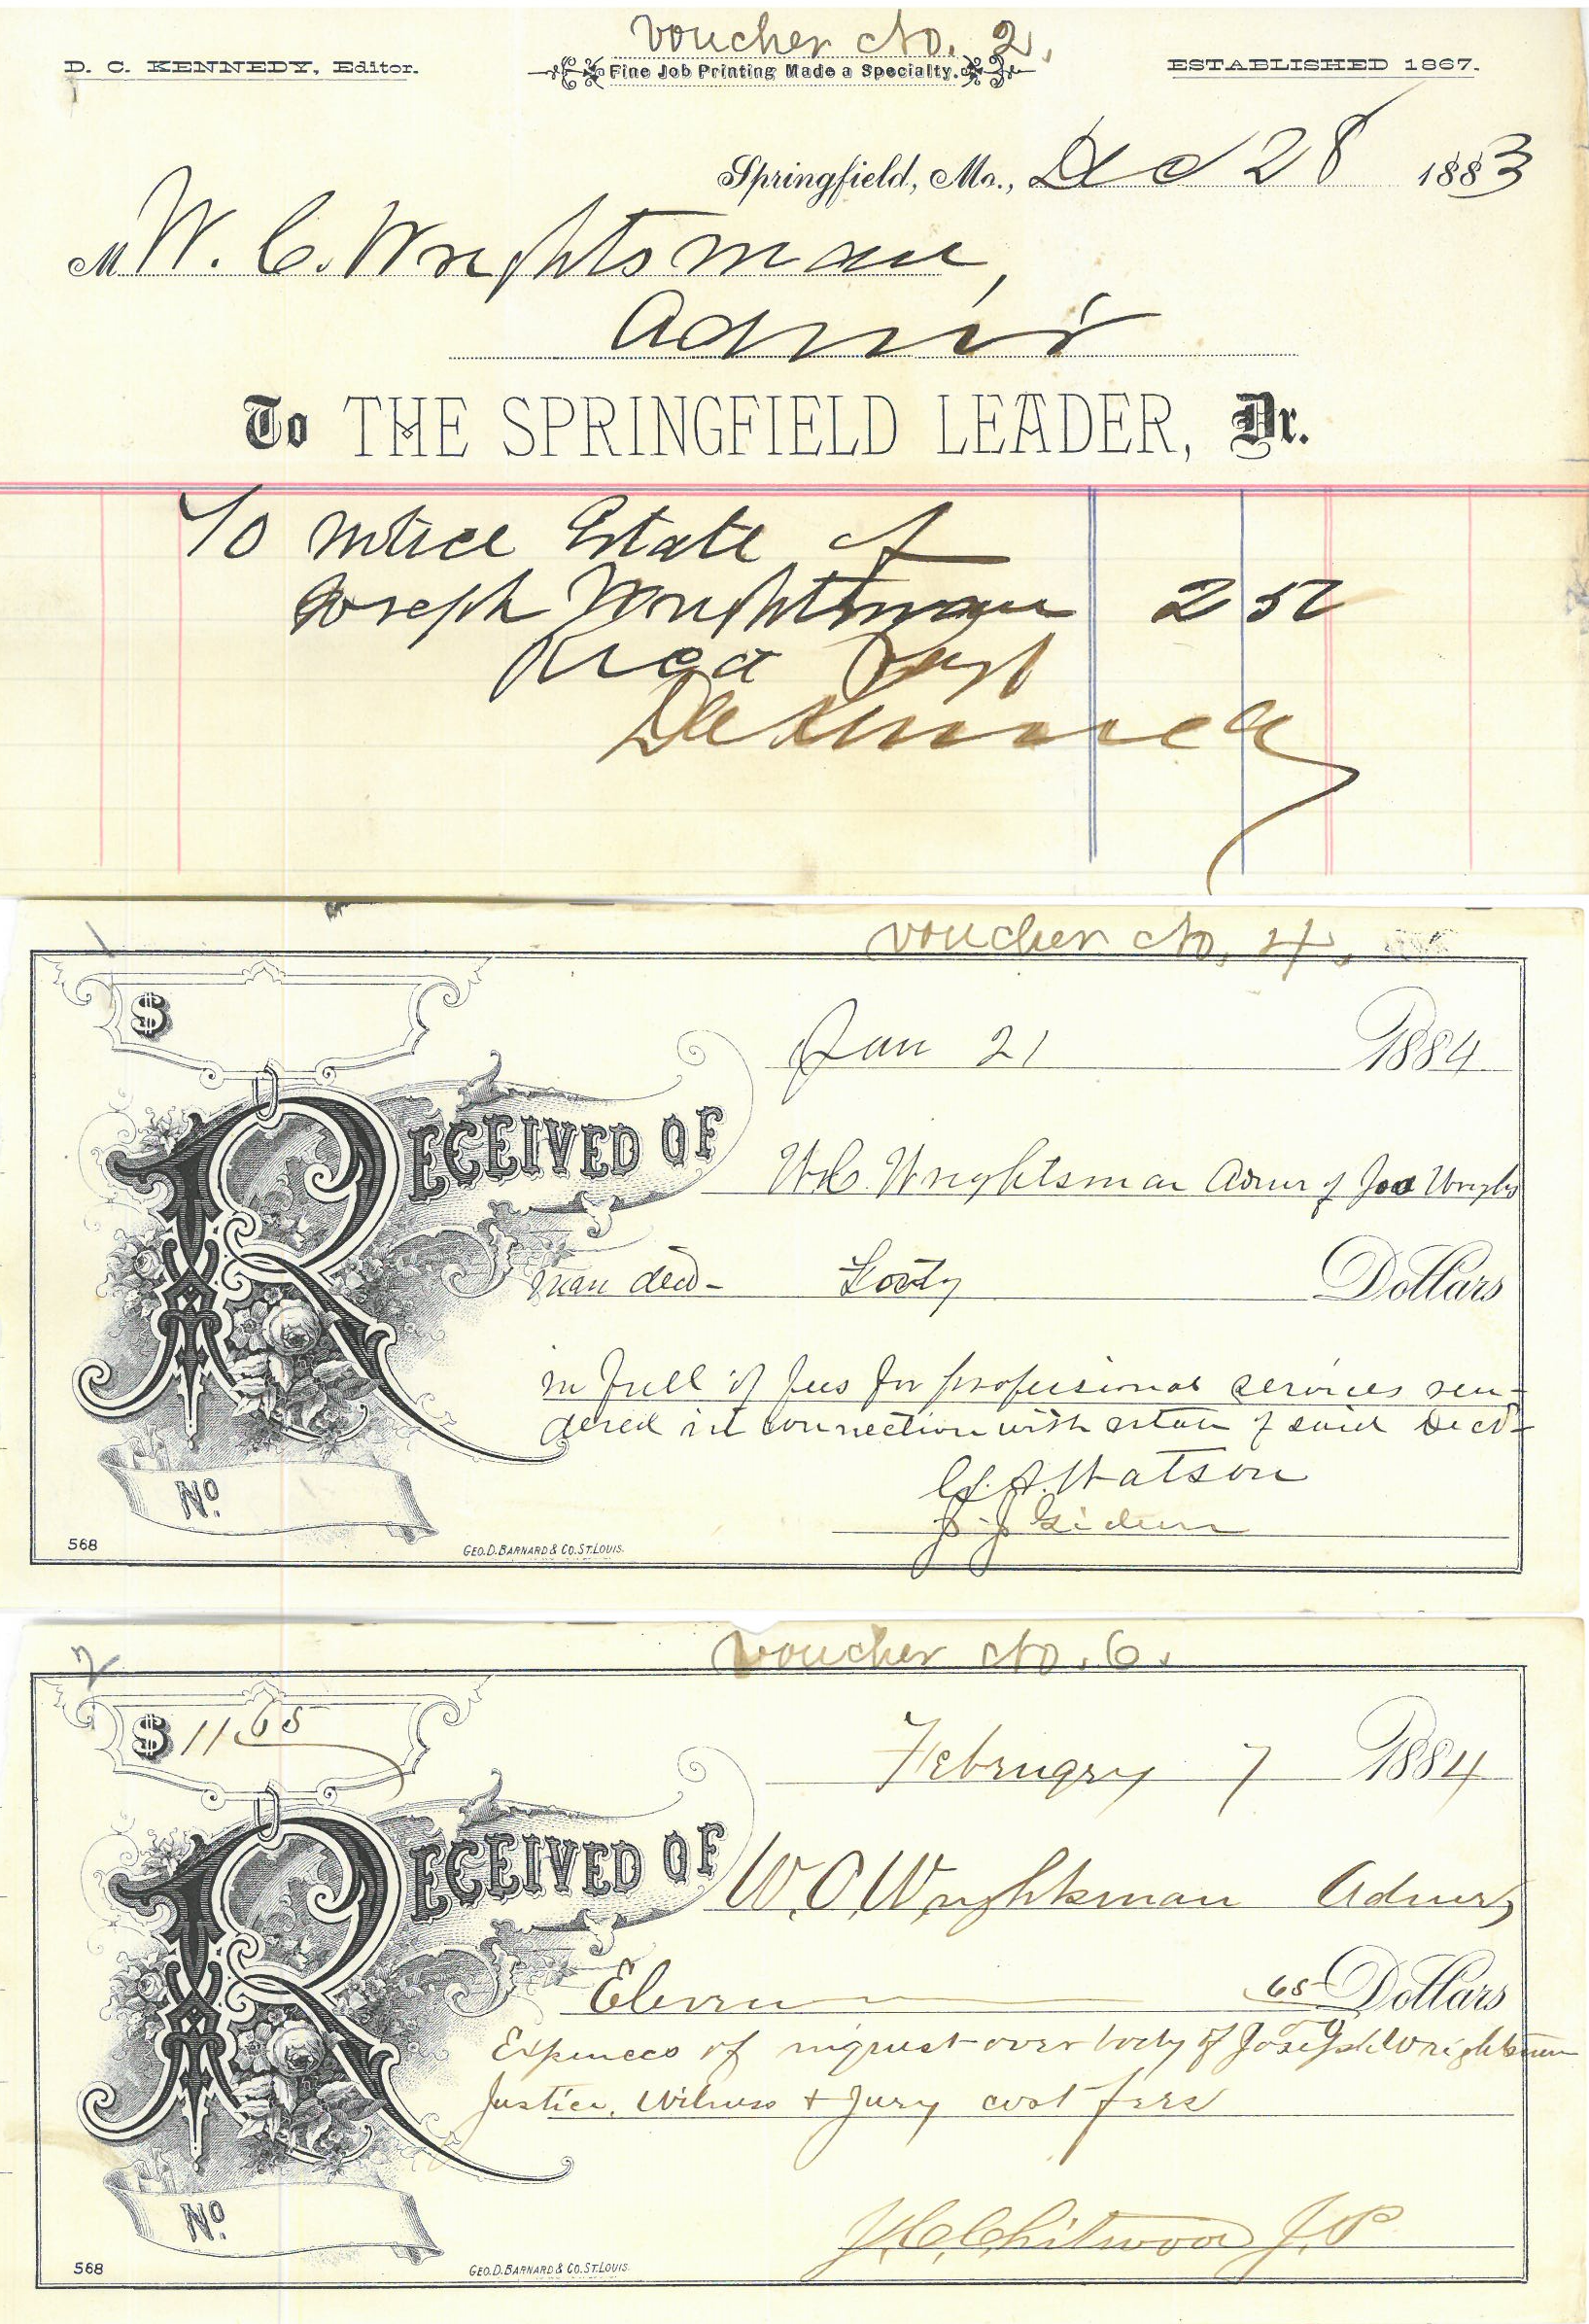 Voucher No. 2.
D. C. KENNEDY, Editor.
Fine Job Printing Made a Specialty.
ESTABLISHED 1867.
Springfield, Mo., Dec 28 1883
M W. C. Wrightsman,
Admir
To THE SPRINGFIELD LEADER, Dr.
To notice Estate of
Joseph Wrightsman 2 50
Recd Payt
D C Kennedy
Voucher No. 4.
$
Jan 21 1884
RECEIVED OF W.C. Wrightsman Admr of Jos Wrights
man decd- Forty Dollars
in full of fees for professional services ren-
dered in connection with estate of said Decd-
C. A. Watson
J. J. Gideon
No.
568
GEO. D. BARNARD & CO. ST. LOUIS.
Voucher No. 6.
$ 11 65
February 7 1884
RECEIVED OF W. C. Wrightsman Admr,
Eleven 65 Dollars
Expences of inquest over body of Joseph Wrightsman
Justice, Witness + Jury cost fees
J. C. Chitwood J. P
No.
568
GEO. D. BARNARD & CO. ST. LOUIS.